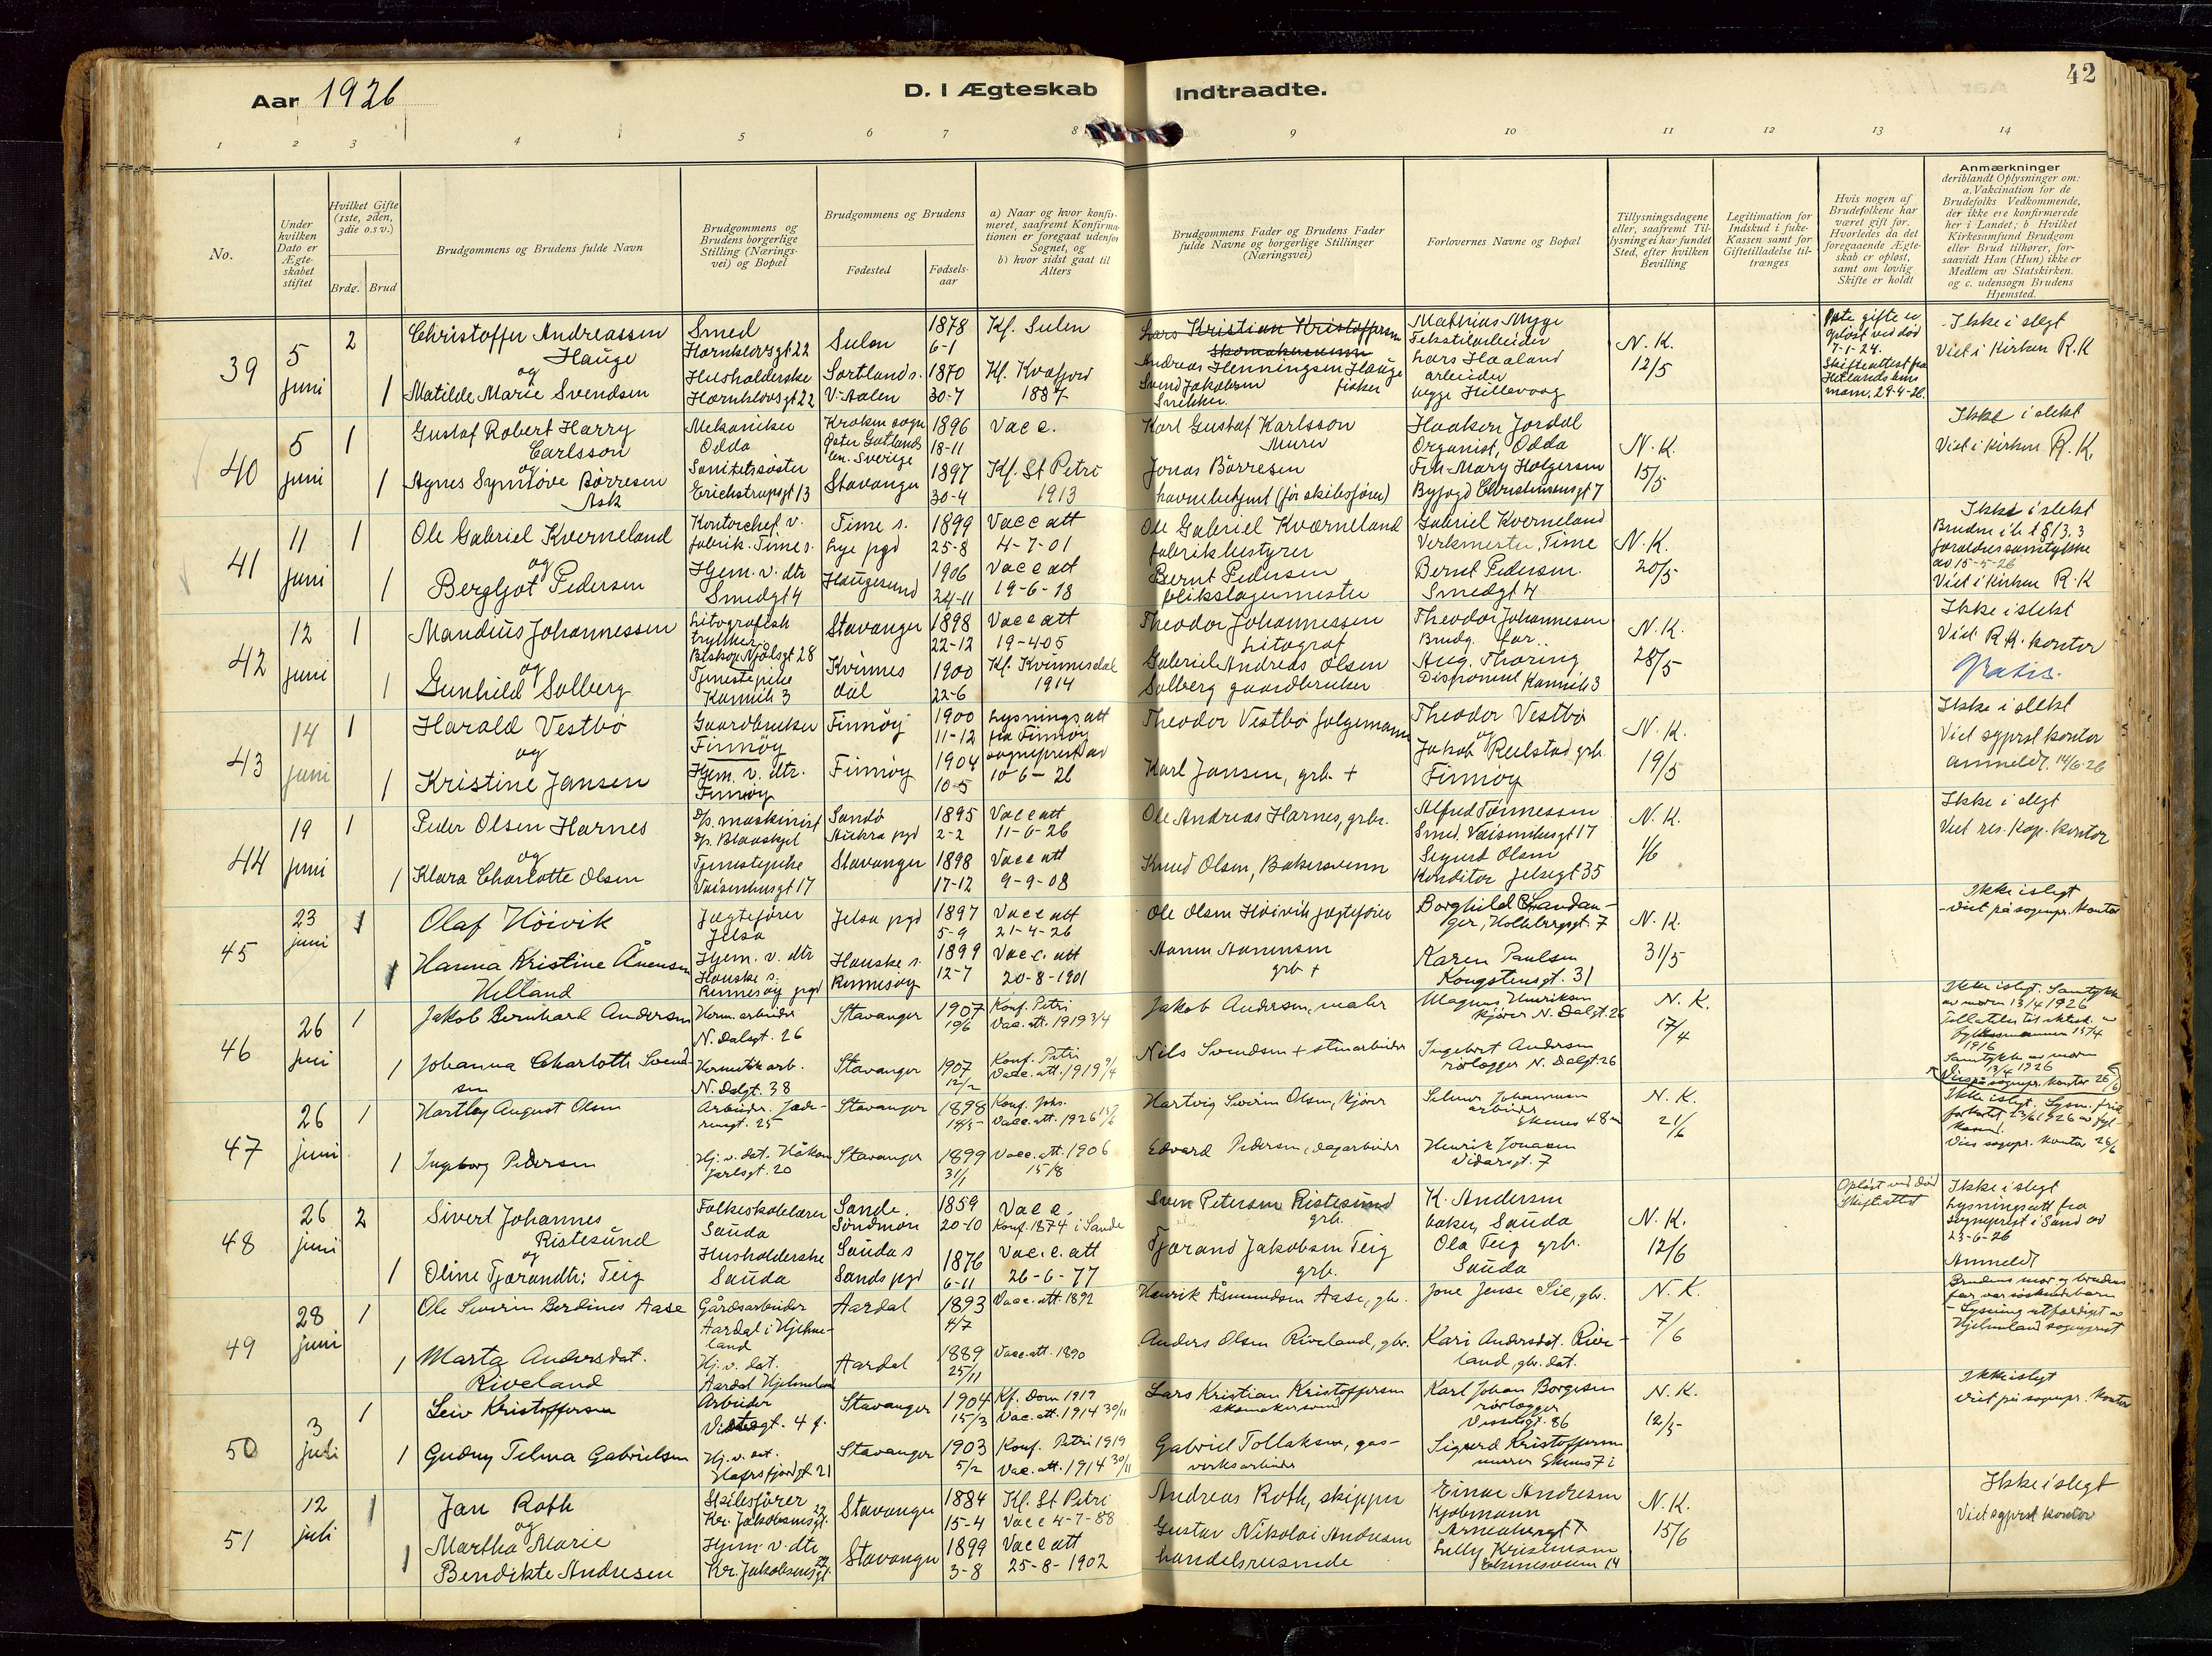 42
Aar 1926
D. I Ægteskab Indtraadte.
1 2 3 4 5 6 7 8 9 10 11 12 13 14
No.
Under hvilken Dato er Ægteskabet stiftet
Hvilket Gifte (1ste, 2den, 3die o.s.v.)
Brdg. Brud
Brudgommens og Brudens fulde Navn
Brudgommens og Brudens borgerlige Stilling (Næringsvei) og Bopæl
Brudgommens og Brudens
Fødested
Fødselsaar
a) Naar og hvor konfirmeret, saafremt Konfirmationen er foregaat udenfor Sognet, og b) hvor sidst gaat til Alters
Brudgommens Fader og Brudens Fader fulde Navne og borgerlige Stillinger (Næringsvei)
Forlovernes Navne og Bopæl
Tillysningsdagene eller, saafremt Tillysning ei har fundet Sted, efter hvilken Bevilling
Legitimation for Indskud i fuke-Kassen samt for Giftetilladelse tiltrænges
Hvis nogen af Brudefolkene har været gift før. Hvorledes da det foregaaende Ægteskab er opløst, samt om lovlig Skifte er holdt
Anmærkninger
deriblandt Oplysninger om: a. Vakcination for de Brudefolks Vedkommende, der ikke ere konfirmerede her i Landet; b Hvilket Kirkesamfund Brudgom eller Brud tilhører, forsaavidt Han (Hun) ikke er Medlem av Statskirken. og c. udensogn Brudens Hjemsted.
39 5 juni 2 Christoffer Andreassen Hauge Smed Harnklovsgt 22 Sulen 1878 6-1 Kf. Sulen
Lars Kristian Kristoffersen Skomakersvenn Andreas Henningsen Hauge fisker
Mathias Myge Tekstilarbeider N. K. 12/5
1ste gifte er opløst ved død 7-1-24. Skifteattest fra Hetlands lensmann. 29-4-26.
Ikke i slegt Viet i Kirken R.K
og 1 Matilde Marie Svendsen Husholderske Harnklovsgt 22 Sortlands. V-Aalen 1870 30-7 Kf. Kvæfjord 1887
Svend Jakobsen Snekker. Lars Haaland arbeider begge Hillevaag
40 5 juni 1 Gustaf Robert Harry Carlsson Mekaniker Odda Kroken sogn Øster Gøtlands len. Sverige 1896 18-11 Vacc.
Karl Gustaf Karlsson Murer Haakon Jordal Organist, Odda N. K. 15/5
Ikke i slekt Viet i kirken R. K.
og 1 Agnes Synnøve Børresen Ask Sanitetssøster Erichstrupsgt 13 Stavanger 1897 30-4 Kf. St Petri 1913
Jonas Børresen havnebetjent (før skibsfører) Frk. Mary Holgersen Byfogd Christensensgt 7
41 11 juni 1 Ole Gabriel Kverneland Kontorchef v. fabrik. Time s. Time s. Lye pgd 1899 25-8 Vacc att 4-7-01
Ole Gabriel Kværneland fabrikbestyrer Gabriel Kverneland Verkmester, Time N. K. 20/5
Ikke i slekt foreldresamtykke av 15-5-26 Viet i kirken R. K
og 1 Bergljot Pedersen Hjem. v. dtr Smedgt 4 Haugesund 1906 24-11 Vacc att 19-6-18
Bernt Pedersen blikslagermester Bernt Pedersen. Smedgt 4
42 12 juni 1 Mandius Johannessen Litografisk trykker. Biskop Njålsgt 28 Stavanger 1898 22-12 Vacc att 19-4-05
Theodor Johannessen Litograf Theodor Johannesen Brudg. far. N. K. 28/5
Ikke i slekt Viet R. K. kontor Gratis.
og 1 Gunhild Solberg Tjenestepike Kannik 3 Kvinnes dal 1900 22-6 Kf. Kvinnesdal 1914
Gabriel Andreas Olsen Solberg gaardbruker Aug. Thoring Disponent Kannik 3
43 14 juni 1 Harald Vestbø Gaardbruker Finnøy Finnøy 1900 11-12 Lysningsatt fra Finnøy sogneprest av 10-6-26
Theodor Vestbø folgemann Theodor Vestbø N. K. 19/5
Ikke i slekt Viet sgprst kontor anmeldt. 14/6-26
og 1 Kristine Jansen Hjem. v. dtr. Finnøy Finnøy 1904 10-5
Karl Jansen, grb. + og Jakob Reilstad grb. Finnøy
44 19 juni 1 Peder Olsen Harnes D/s. maskinist D/s. Blaaskjel Sandø Aukra pgd 1895 2-2 Vacc att 11-6-26
Ole Andreas Harnes, grbr. Alfred Tønnessen Smed. Vaisenhusgt 17 N. K. 1/6
Ikke i slegt Viet res. kap. kontor
og 1 Klara Charlotte Olsen Tjenestepike Vaisenhusgt 17 Stavanger 1898 17-12 Vacc att 9-9-08
Knud Olsen, Bakersvenn Sigurd Olsen Konditor Jelsegt 35
45 23 juni 1 Olaf Høivik Jægtefører Jelsa Jelsa pgd 1897 5-9 Vacc att 21-4-26
Ole Olsen Høivik jægtefører Borghild Sandanger, Holbbergsgt. 7 N. K. 31/5
Ikke i slegt -viet på sognepr. kontor
1 Hanna Kristine Ånensen Helland Hjem. v. dtr Hauske s. Rennesøy prgd Hauske s. Rennesøy 1899 12-7 Vacc. att 20-8-1901
Aanen Aanensen grb + Karen Paulsen Kongstensgt. 31
46 26 juni 1 Jakob Bernhard Andersen Herm. arbeider N. Dalsgt. 26 Stavanger 1907 10/6 Konf. Petri Vac. att. 1919 3/4
Jakob Andersen, maler Magnus Henriksen kjører N. Dalsgt. 26 N. K. 17/4
Ikke i slegt. Samtykke av moren 13/4 1926 Samtykke av moren 13/4 1926 Viet på sognepr. kontor 26/6
1 Johanna Charlotte Svendsen Hermetikkarb. N. Dalgt. 38 Stavanger 1907 12/2 Konf. Petri Vacc. att. 1919 9/4
Nils Svendsen + stenarbeider Ingebret Andersen rørlegger N. Dalgt. 26
47 26 juni 1 Hartley August Olsen Arbeider. Jæderensgt. 25 Stavanger 1898 Konf. Johs. Vacc. att. 1926 15/6
Hartvig Severin Olsen, kjører Selmer Johannesen arbeider Ekenes 48 N. K. 21/6
Ikke i slegt. Viet sognepr. kontor 26/6
1 Ingeborg Pedersen Hj. v. dat. Håkon Jarlsgt. 20 Stavanger 1899 31/1 Vacc. att. 1906 15/8
Edvard Pedersen, dagarbeider Henrik Jonasen Vidarsgt. 7
48 26 juni 2 Sivert Johannes Ristesund Folkeskolelærer Sauda Sande. Søndmøre 1859 20-10 Vacc. Konf. 1874 i Sande
Sven Petersen Ristesund grb. K. Andersen baker, Sauda N. K. 12/6
Opløst ved død Skifteattest
Ikke i slegt Lysningsatt fra sogneprest i Sand av 23-6-26 Anmeldt
og 1 Oline Tjerandtr. Teig Husholderske Sauda Sauda s Sands pgd 1876 6-11 Vac. c. att 26-6-77
Tjærand Jakobsen Teig grb. Ola Teig grb. Sauda
49 28 juni 1 Ole Severin Berdines Aase Gårdsarbeider Aardal i Hjelmeland Aardal 1893 4/7 Vacc. att. 1892
Henrik Åsmundsen Aase, gbr. Jone Jense Sie, gbr. N. K. 7/6
Brudens mor og brudens far var søskendebarn - Lysning utfærdiget av Hjelmeland sogneprest
1 Marta Andersdat. Riveland Hj. v. dat. Aardal Hjelmeland Aardal 1889 25/11 Vacc. att. 1890
Anders Olsen Riveland, gbr. Kari Andersdat. Riveland, gbr. dat.
50 3 juli 1 Leiv Kristoffersen Arbeider Vistesgt. 4 Stavanger 1904 15/3 Kf. Dom 1919 Vac. att. 1914 30/11
Lars Kristian Kristoffersen skomakersvend Karl Johan Borgesen rørlegger Vistesgt. 86 N. K. 12/5
Ikke i slegt viet på sognepr. kontor
1 Gudny Telma Gabrielsen Hj. v. dat. Hafrsfjordgt. 21 Stavanger 1903 5/2 Konf. Petri 1919 Vac. att. 1914 30/11
Gabriel Tollaksen, gasverksarbeider Sigurd Kristoffersen murer Ekenes 7 i
51 12 juli 1 Jan Roth Skibsfører Kr. Jakobsensgt. 22 Stavanger 1884 15-4 Kf. St Petri Vacc 4-7-88
Andreas Roth, skipper Einar Andresen Kjøbmann Arneabergt 7 N. K. 15/6
Ikke i slegt Viet sgprst kontor
og 1 Martha Marie Bendikte Andresen Hjem. v. dtr Kr. Jakobsensgt. 22 Stavanger 1899 3-8 Vacc att 25-8-1902
Gustav Nikolai Andresen handelsreisende Lilly Kristensen